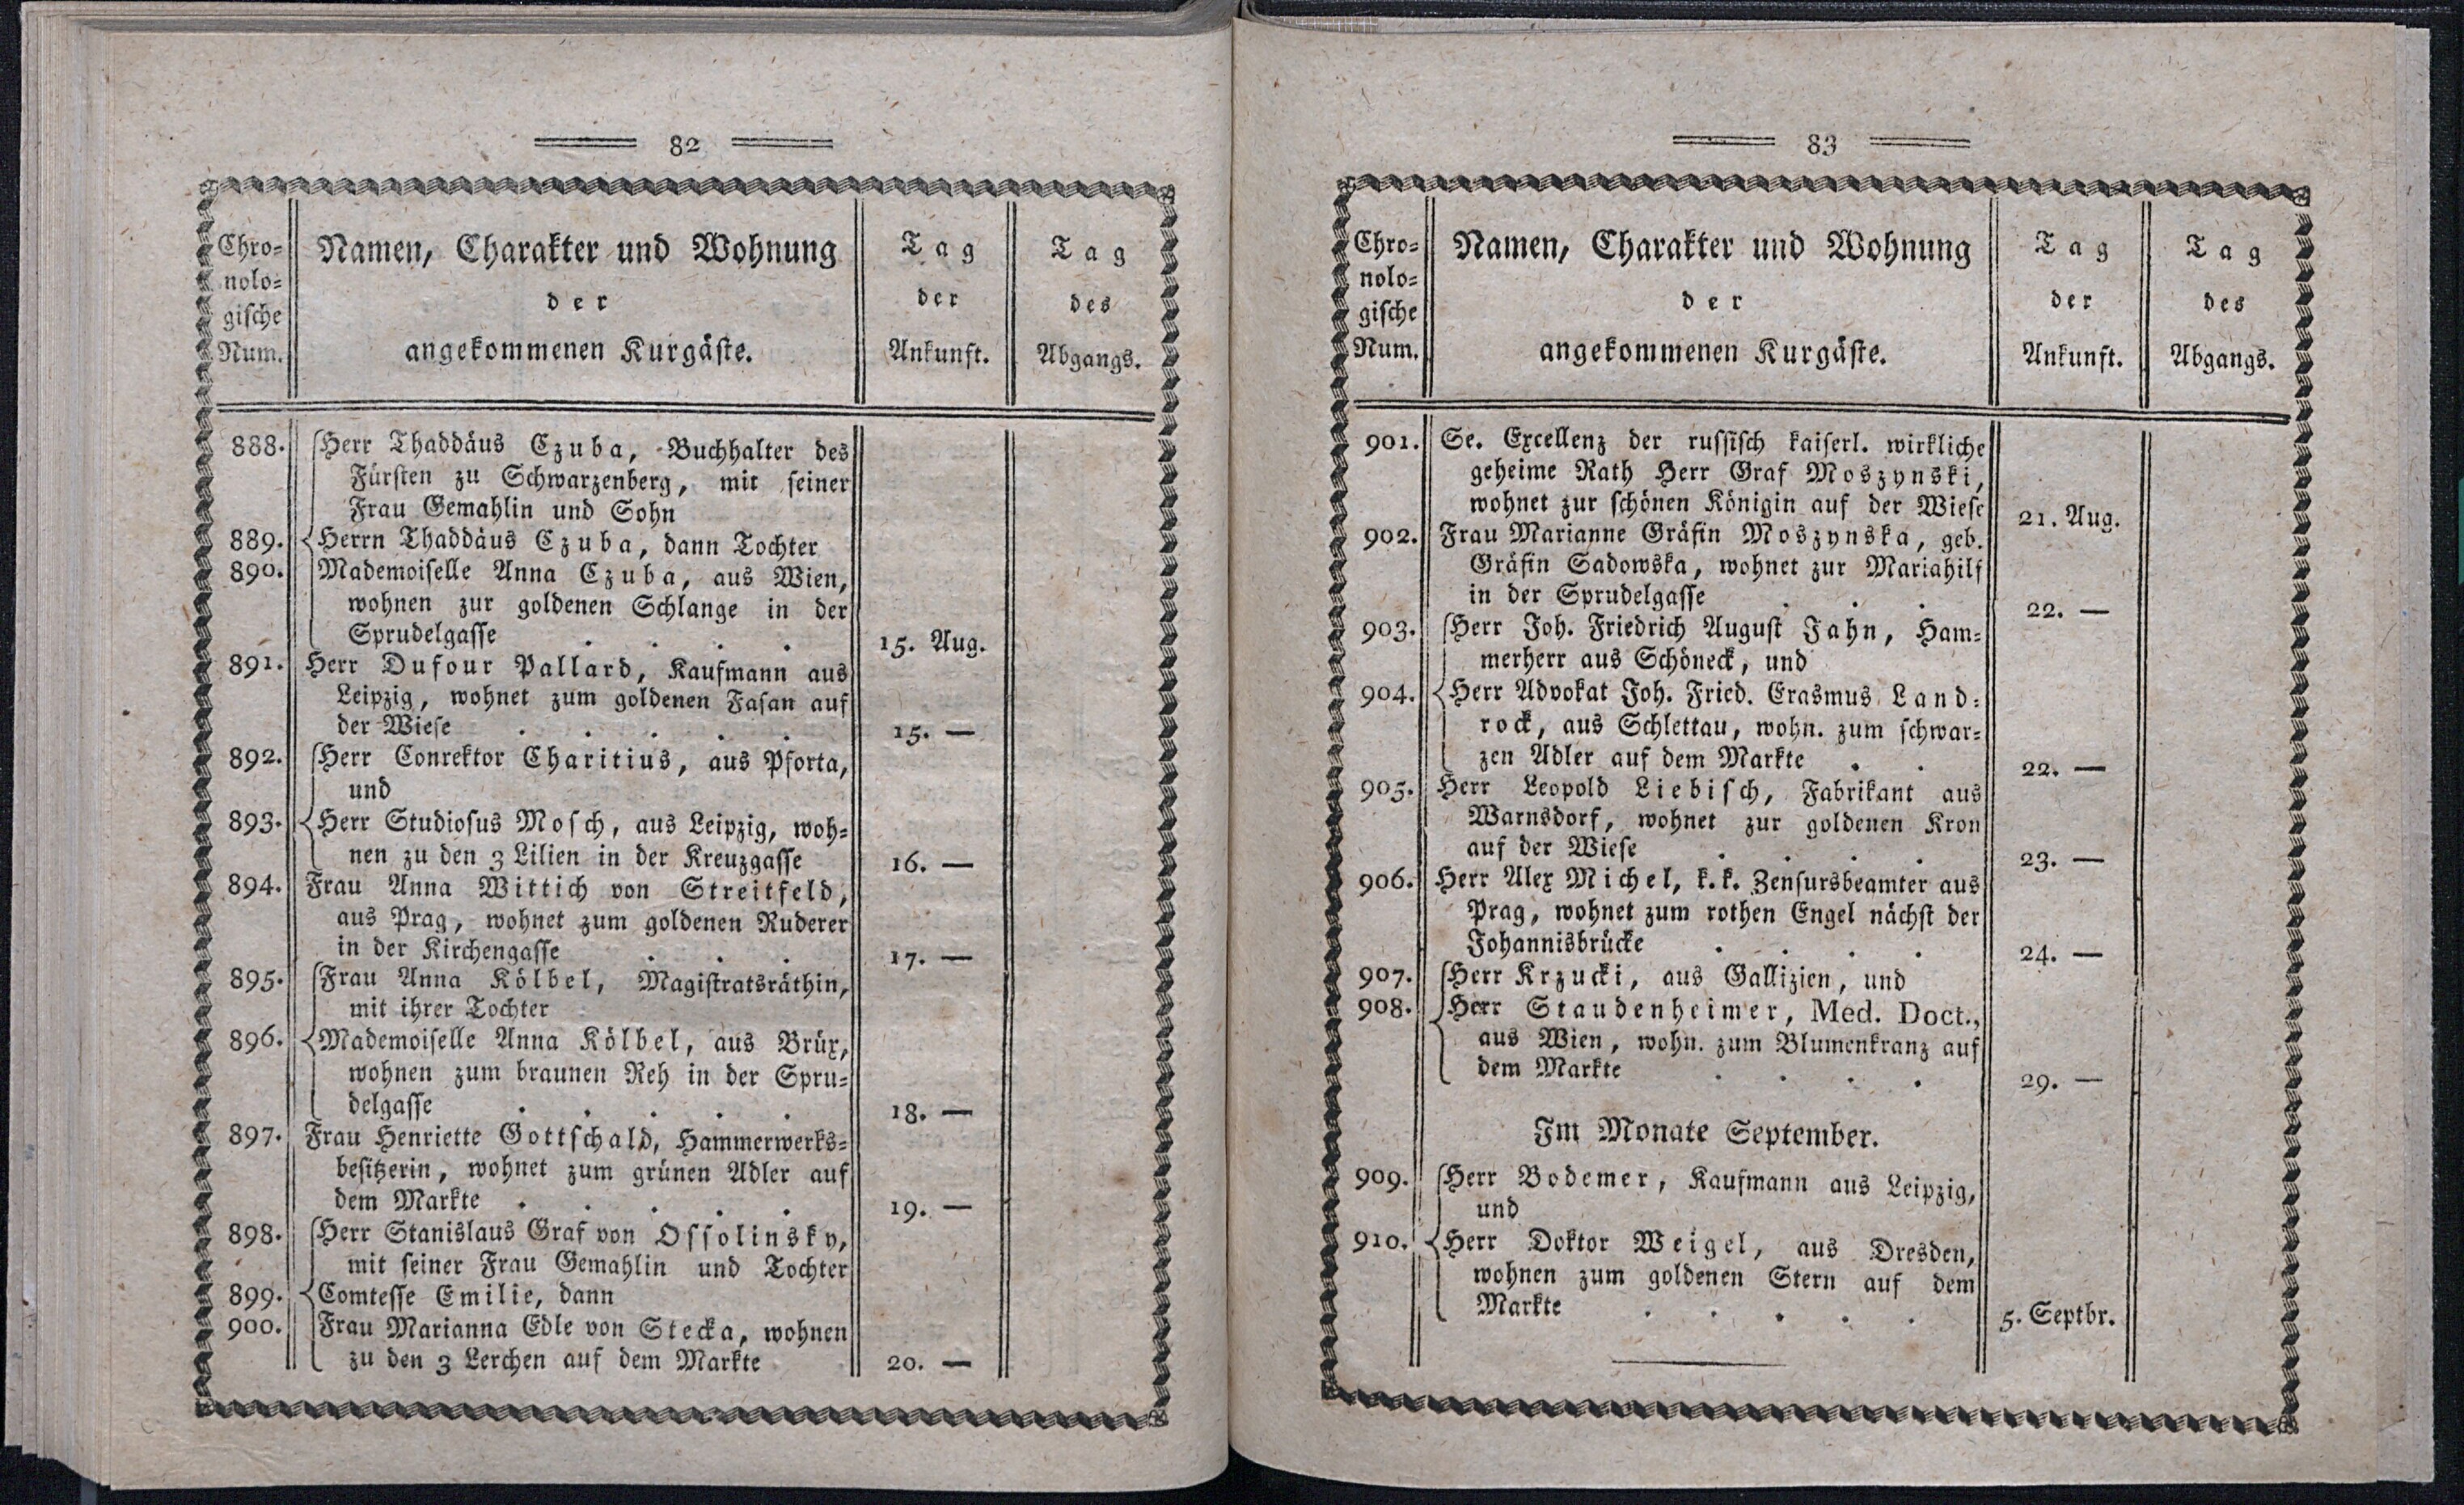 82
Chro-
nolo-
gische
Num.
Namen, Charakter und Wohnung
der
angekommenen Kurgäste.
Tag
der
Ankunft.
Tag
des
Abgangs.
888. Herr Thaddäus Czuba, Buchhalter des
Fürsten zu Schwarzenberg, mit seiner
Frau Gemahlin und Sohn
889. Herrn Thaddäus Czuba, dann Tochter
890. Mademoiselle Anna Czuba, aus Wien,
wohnen zur goldenen Schlange in der
Sprudelgasse . . . . 15. Aug.
891. Herr Dufour Pallard, Kaufmann aus
Leipzig, wohnet zum goldenen Fasan auf
der Wiese . . . . . 15. —
892. Herr Conrektor Charitius, aus Pforta,
und
893. Herr Studiosus Mosch, aus Leipzig, woh-
nen zu den 3 Lilien in der Kreuzgasse 16. —
894. Frau Anna Wittich von Streitfeld,
aus Prag, wohnet zum goldenen Ruderer
in der Kirchengasse . . . 17. —
895. Frau Anna Kölbel, Magistratsräthin,
mit ihrer Tochter
896. Mademoiselle Anna Kölbel, aus Brüx,
wohnen zum braunen Reh in der Spru-
delgasse . . . . . 18. —
897. Frau Henriette Gottschald, Hammerwerks-
besitzerin, wohnet zum grünen Adler auf
dem Markte . . . . . 19. —
898. Herr Stanislaus Graf von Ossolinsky,
mit seiner Frau Gemahlin und Tochter
899. Comtesse Emilie, dann
900. Frau Marianna Edle von Stecka, wohnen
zu den 3 Lerchen auf dem Markte 20. —
83
Chro-
nolo-
gische
Num.
Namen, Charakter und Wohnung
der
angekommenen Kurgäste.
Tag
der
Ankunft.
Tag
des
Abgangs.
901. Se. Excellenz der russisch kaiserl. wirkliche
geheime Rath Herr Graf Moszynski,
wohnet zur schönen Königin auf der Wiese 21. Aug.
902. Frau Marianne Gräfin Moszynska, geb.
Gräfin Sadowska, wohnet zur Mariahilf
in der Sprudelgasse . . . 22. —
903. Herr Joh. Friedrich August Jahn, Ham-
merherr aus Schöneck, und
904. Herr Advokat Joh. Fried. Erasmus Land-
rock, aus Schlettau, wohn. zum schwar-
zen Adler auf dem Markte . . 22. —
905. Herr Leopold Liebisch, Fabrikant aus
Warnsdorf, wohnet zur goldenen Kron
auf der Wiese . . . . 23. —
906. Herr Alex Michel, k.k. Zensursbeamter aus
Prag, wohnet zum rothen Engel nächst der
Johannisbrücke . . . . 24. —
907. Herr Krzucki, aus Gallizien, und
908. Herr Staudenheimer, Med. Doct.,
aus Wien, wohn. zum Blumenkranz auf
dem Markte . . . . 29. —
Im Monate September.
909. Herr Bodemer, Kaufmann aus Leipzig,
und
910. Herr Doktor Weigel, aus Dresden,
wohnen zum goldenen Stern auf dem
Markte . . . . . 5. Septbr.